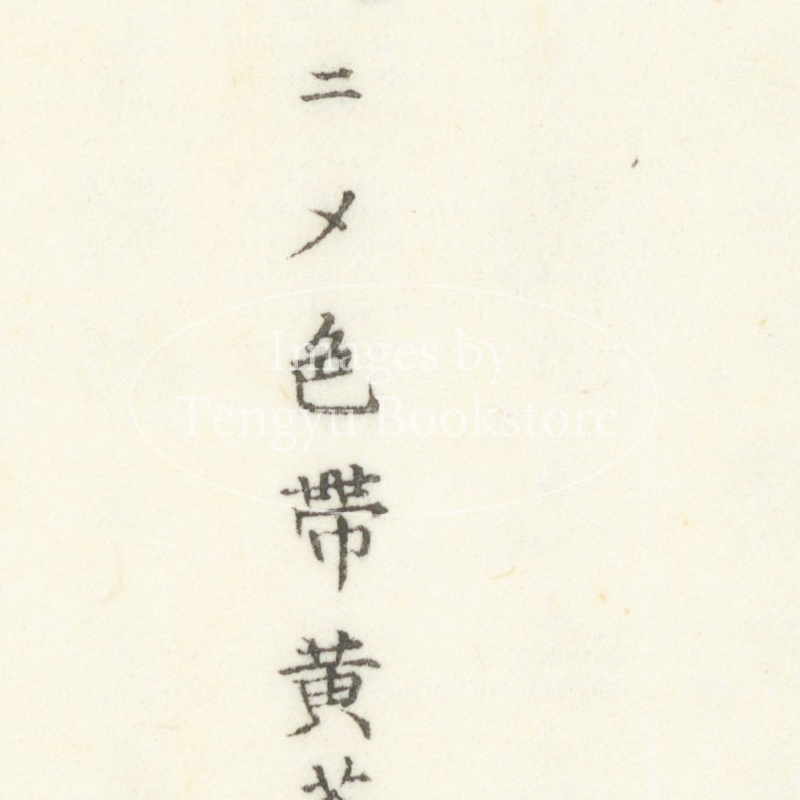 ニメ色帶黄
Images by
Tengyu Bookstore